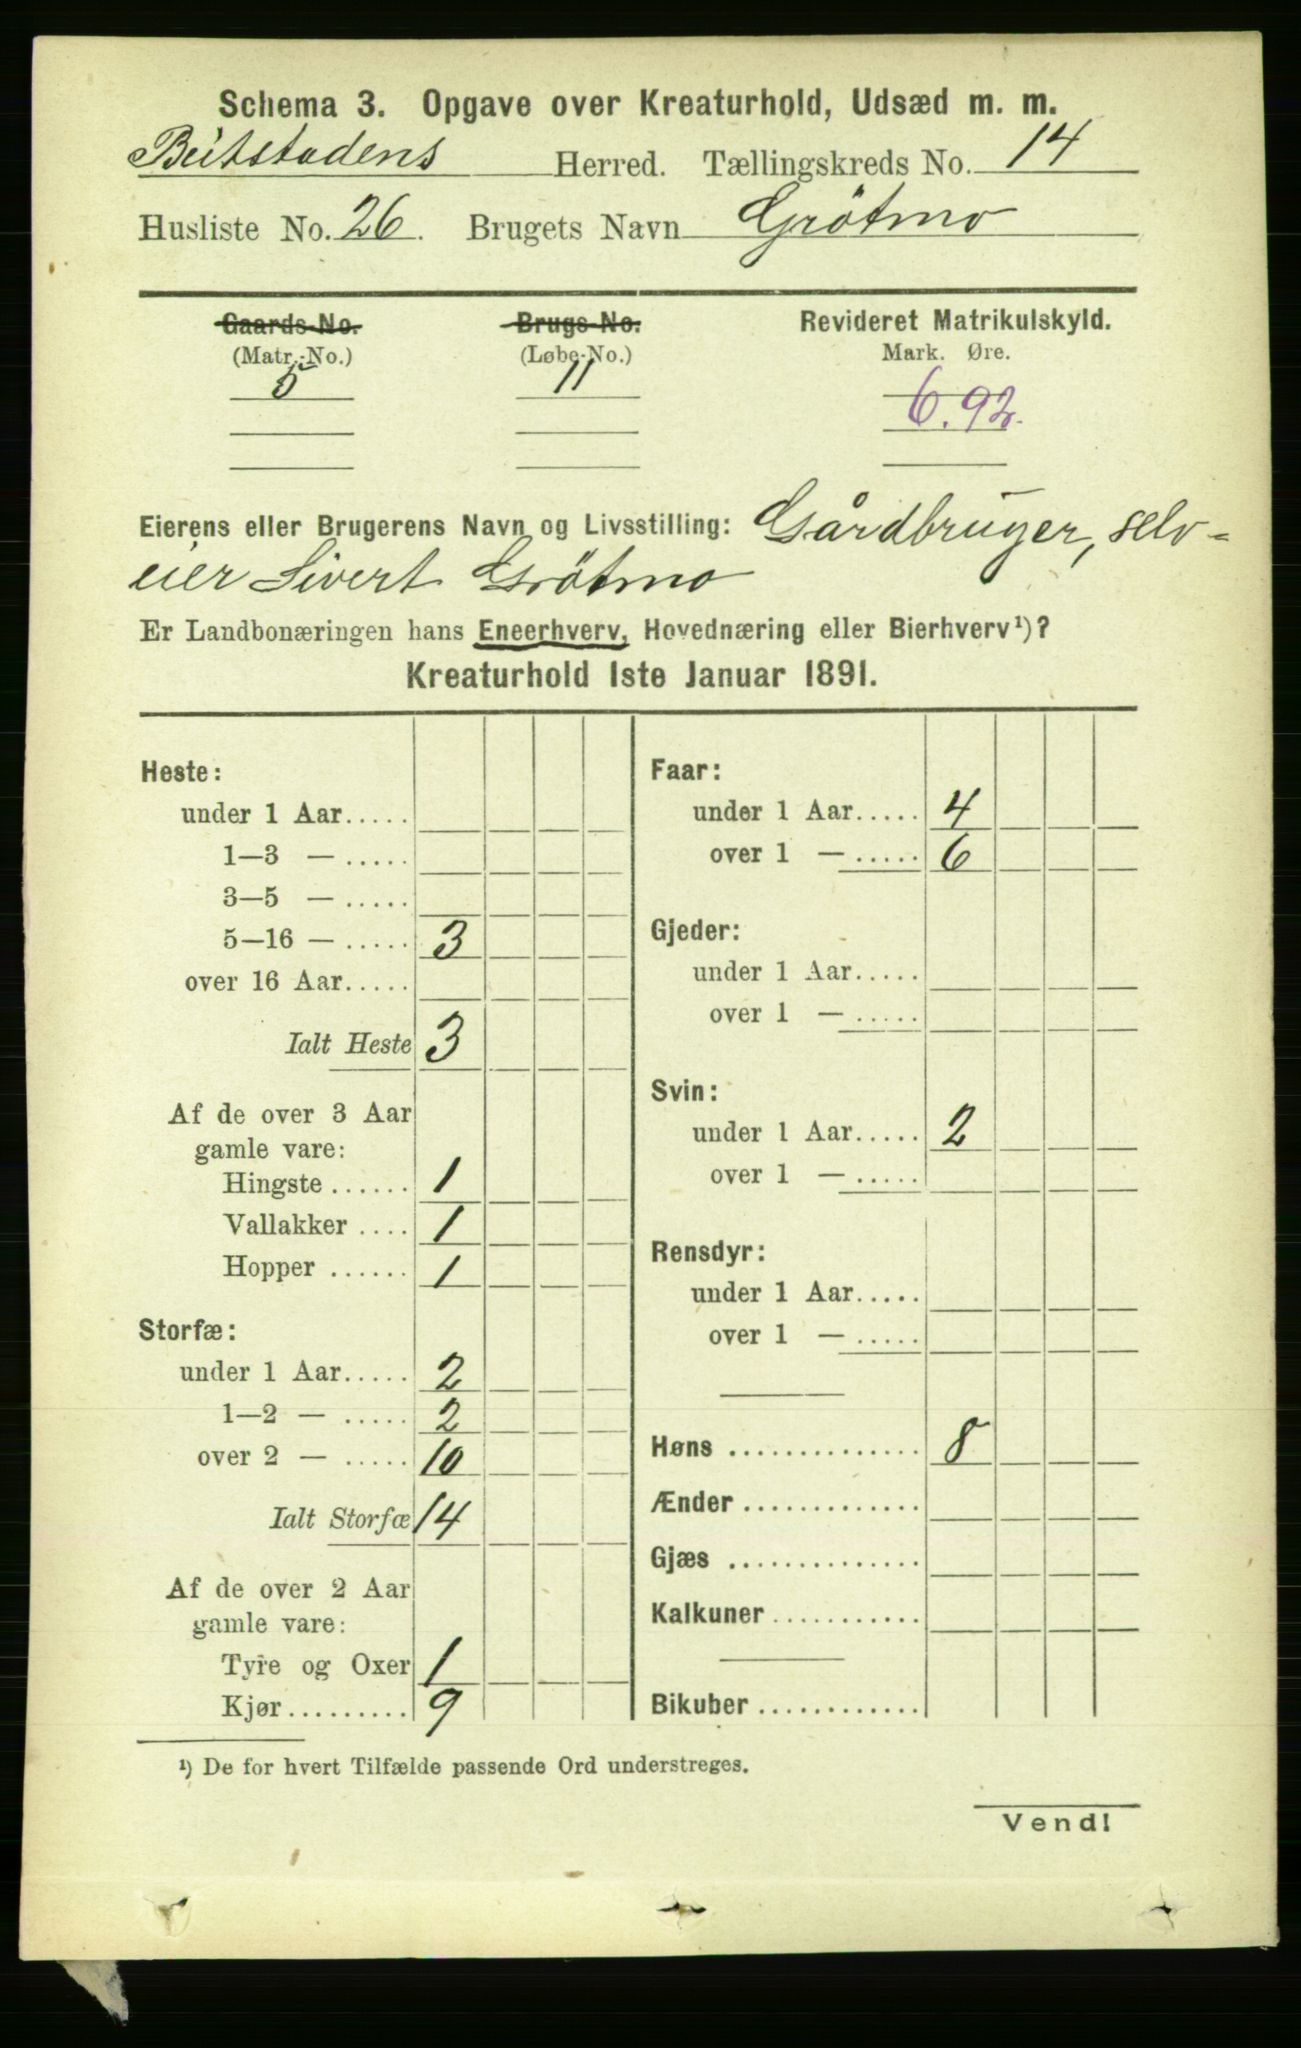 Schema 3. Opgave over Kreaturhold, Udsæd m. m.
Beitstadens Herred. Tællingskreds No. 14
Husliste No. 26. Brugets Navn Grötmo
Gaards-No. Brugs-No. Revideret Matrikulskyld.
(Matr.-No.) (Løbe-No.) Mark. Øre.
5 11 6.92.
Eierens eller Brugerens Navn og Livsstilling: Gårdbruger, selv-
eier Sivert Grötmo
Er Landbonæringen hans Eneerhverv, Hovednæring eller Bierhverv¹)?
Kreaturhold 1ste Januar 1891.
Heste:
under 1 Aar.....
1—3 — .....
3—5 — .....
5—16 — ..... 3
over 16 Aar.....
Ialt Heste 3
Af de over 3 Aar
gamle vare:
Hingste ...... 1
Vallakker .... 1
Hopper ...... 1
Storfæ:
under 1 Aar..... 2
1—2 — ..... 2
over 2 — ..... 10
Ialt Storfæ 14
Af de over 2 Aar
gamle vare:
Tyre og Oxer 1
Kjør......... 9
Faar:
under 1 Aar..... 4
over 1 — ..... 6
Gjeder:
under 1 Aar.....
over 1 — .....
Svin:
under 1 Aar..... 2
over 1 — .....
Rensdyr:
under 1 Aar.....
over 1 — .....
Høns .............. 8
Ænder .............
Gjæs ..............
Kalkuner ...........
Bikuber ............
¹) De for hvert Tilfælde passende Ord understreges.
Vend!